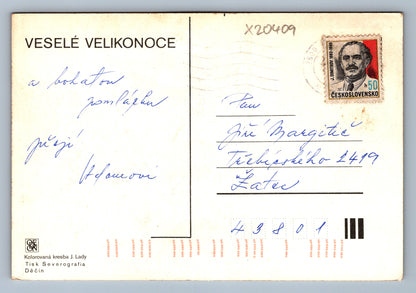 X20409
VESELÉ VELIKONOCE
J. DIMITROV 1882-1949
50
ČESKOSLOVENSKO
a bohatou
pomlázku
přejí
Adamovi
Pan
Jiří Margitič
Třebízského 1419
Žatec
43801
Kolorovaná kresba J. Lady
Tisk Severografia
Děčín